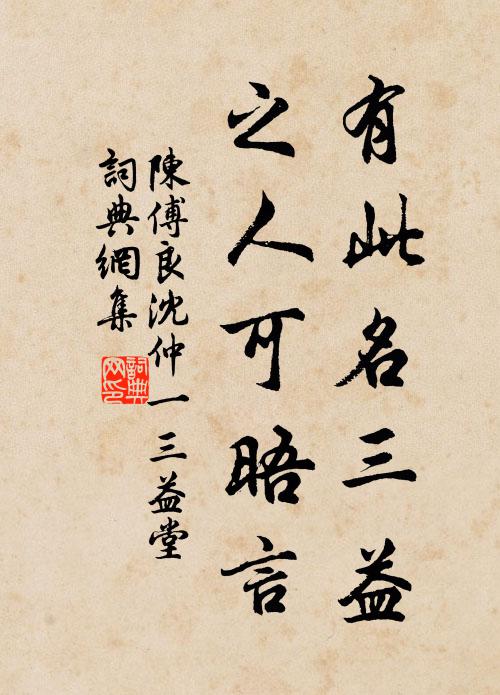 有此名三益
之人可晤言
陳傅良沈仲一三益堂
詞典網集
詞典网印